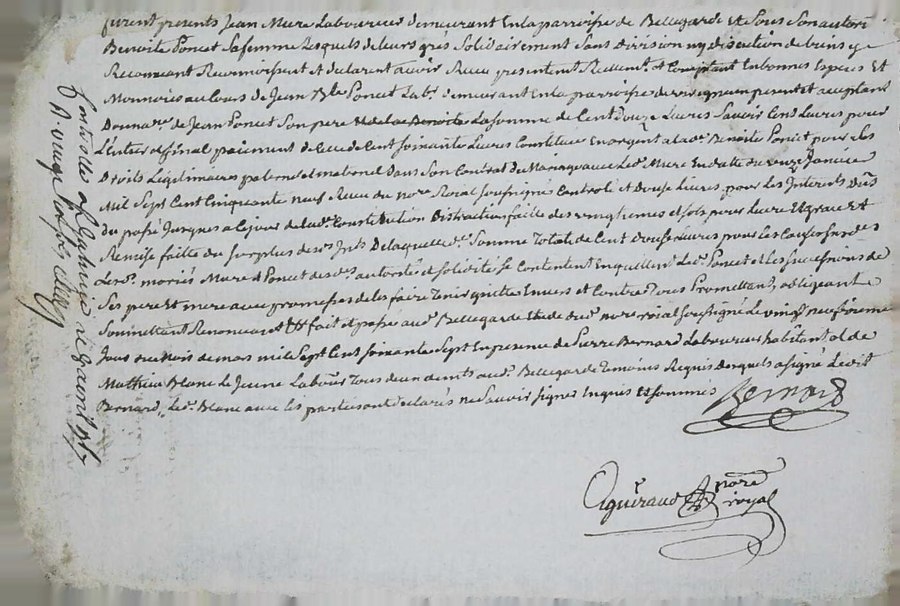 furent presents Jean Mure Laboureur demeurant En la parroisse de Bellegarde et Sous Son autori
Benoite Poncet Sa femme Lesquels de leurs grés Solidairement Sans division ny discution de biens
Reconnoissent et declarent avoir Recu presentemt Reellemt et Comptant En bonnes Especes Et
Monnoies au Cours de Jean Poncet Labr demeurant En la parroisse de present et acceptant
de Jean Poncet Son pere La somme de Cent douze Livres Savoir Cent Livres pour
L'entier et final paiement de Celle de Cent soixante Livres Constituée En argent a lade Benoite Poncet pour Ses
Droits Legitimaires paternel et maternel dans Son Contrat de Mariage avec Led. Mure En datte du onze Janvier
Mil Sept Cent Cinquante Neuf Recu du nore Roial soussigné Controlé et douse Livres pour Les Interets
du passé Jusques a Ce jour de lade Constitution Distraction faitte des vingtiemes et sols pour Livre Et grace Et
Remise faitte du Surplus desd. De laquelle de Somme Totale de Cent douse Livres pour Les Causes Susdes
Lesd. mariés Mure et Poncet desd. autorité et solidité se Contentent En quittent Led. Poncet et Les successeurs de
Ses pere Et mere avec promesses de les faire Tenir quitte Envers et Contre Tous Promettant, obligeant
Soumettant Renonceant Fait et passé aud. Bellegarde Etude du nore roial soussigné Le vingt neufvieme
Jour du Mois de mars mil Sept Cent Soixante Sept En presence de Pierre Bernard Laboureur habitant et de
Mathieu Blanc Le Jeune Labour Tous deux dud. Bellegarde Temoins Requis desquels a signé Ledit
Bernard, Led. Blanc avec les parties ont declarés ne Savoir signer Enquis Et sommés
Bernard
nore
royal